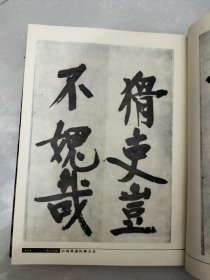 猾吏豈
不媿哉